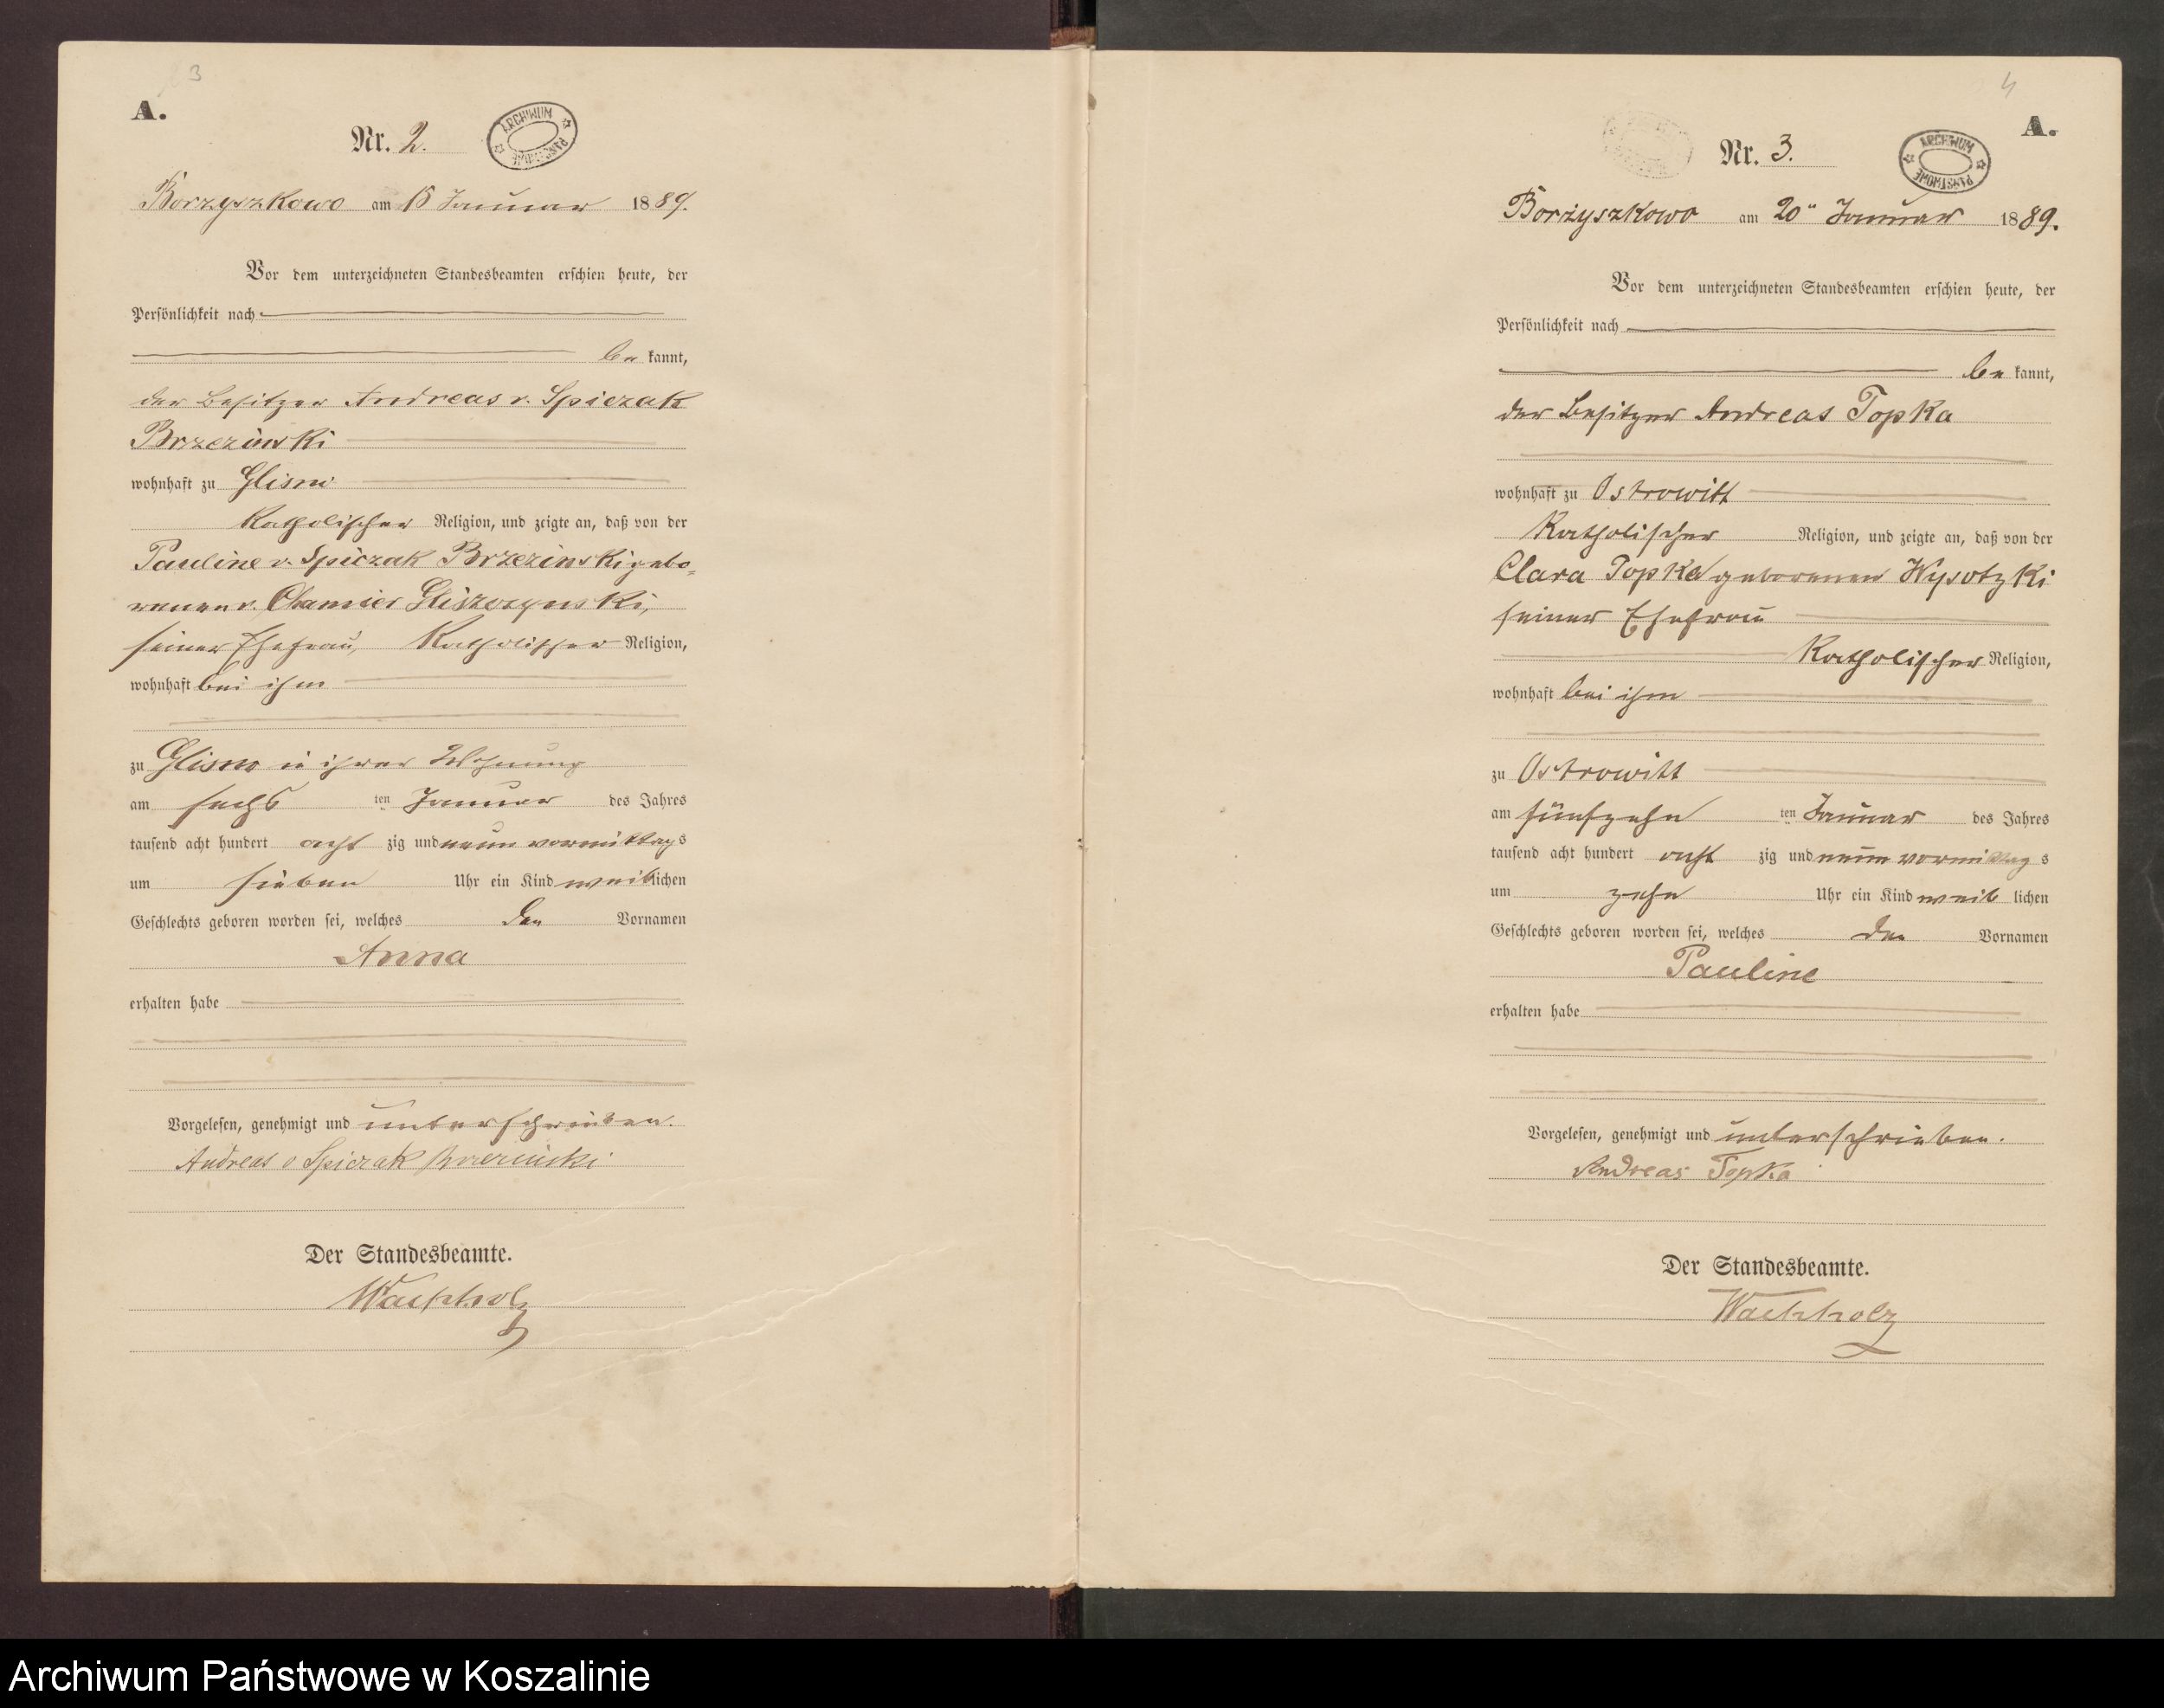 3
A.
Nr. 2.
ARCHIWUM PAŃSTWOWE
Borzyszkowo am Januar 1889.
Vor dem unterzeichneten Standesbeamten erschien heute, der
Persönlichkeit nach
be kannt,
der Besitzer Andreas v. Spiczak
Brzezinski
wohnhaft zu Glisno
Katholischer Religion, und zeigte an, daß von der
Pauline v. Spiczak Brzezinski gebo-
renen v. Chamier Gliszczynski,
seiner Ehefrau, Katholischer Religion,
wohnhaft bei ihm
zu Glisno in ihrer Wohnung
am sechs ten Januar des Jahres
tausend acht hundert acht zig und neun vormittags
um sieben Uhr ein Kind weiblichen
Geschlechts geboren worden sei, welches den Vornamen
Anna
erhalten habe
Vorgelesen, genehmigt und unterschrieben.
Andreas v Spiczak Brzezinski
Der Standesbeamte.
Wachholz
4
A.
Nr. 3.
ARCHIWUM PAŃSTWOWE
Borzyszkowo am 20" Januar 1889.
Vor dem unterzeichneten Standesbeamten erschien heute, der
Persönlichkeit nach
be kannt,
der Besitzer Andreas Topka
wohnhaft zu Ostrowitt
Katholischer Religion, und zeigte an, daß von der
Clara Topka geborenen Wysotzki
seiner Ehefrau
Katholischer Religion,
wohnhaft bei ihm
zu Ostrowitt
am fünfzehn ten Januar des Jahres
tausend acht hundert acht zig und neun vormittag s
um zehn Uhr ein Kind weib lichen
Geschlechts geboren worden sei, welches den Vornamen
Pauline
erhalten habe
Vorgelesen, genehmigt und unterschrieben.
Andreas Topka
Der Standesbeamte.
Wachholz
Archiwum Państwowe w Koszalinie